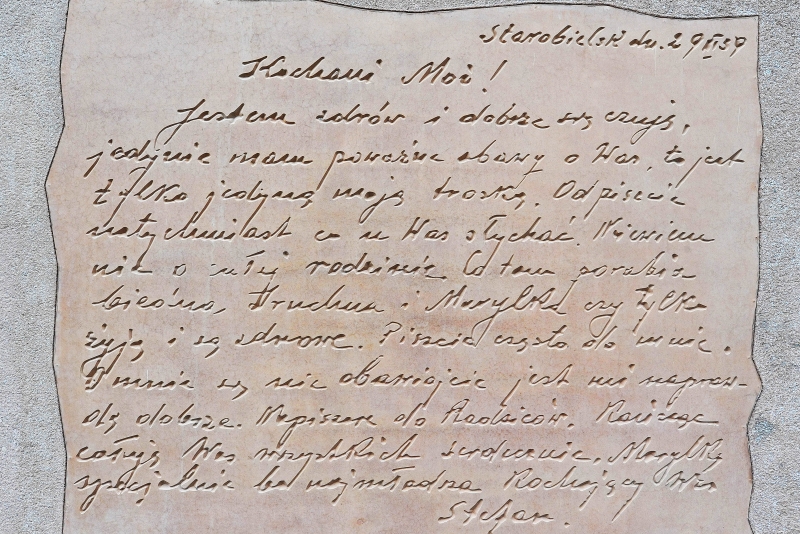 Starobielsk dn. 29 XI 39
Kochani Moi!
Jestem zdrów i dobrze się czuję,
jedynie mam poważne obawy o Was, to jest
tylko jedyną moją troską. Odpiszcie
natychmiast co u Was słychać. Nic wiem
nic o całej rodzinie. Co tam porabia
biedna, Truchna i Marylka czy tylko
żyją i są zdrowe. Piszcie często do mnie.
O mnie się nie obawiajcie jest mi napraw-
dę dobrze. Napiszcie do Rodziców. Kończąc
całuję Was wszystkich serdecznie, Marylkę
specjalnie bo najmłodsza Kochający Was
Stefan.